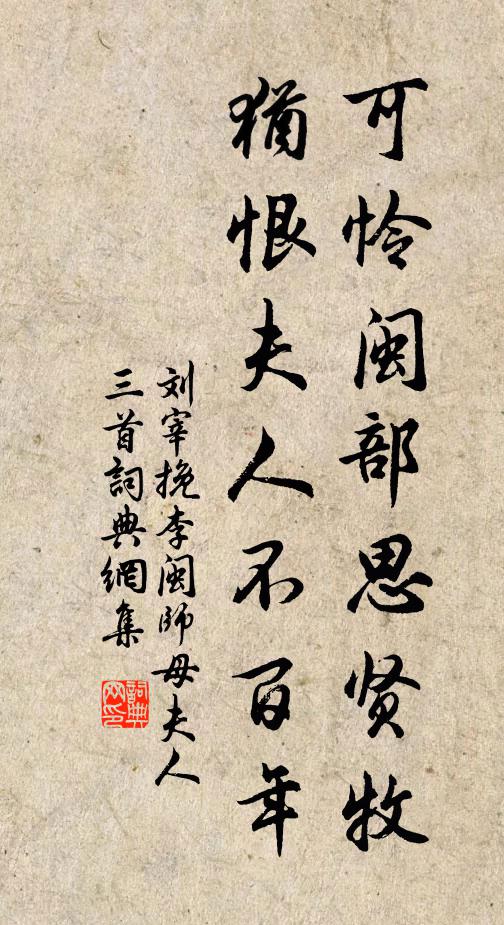 可怜闽部思贤牧
犹恨夫人不百年
刘宰挽李闽师母夫人
三首詞典網集
詞典网印